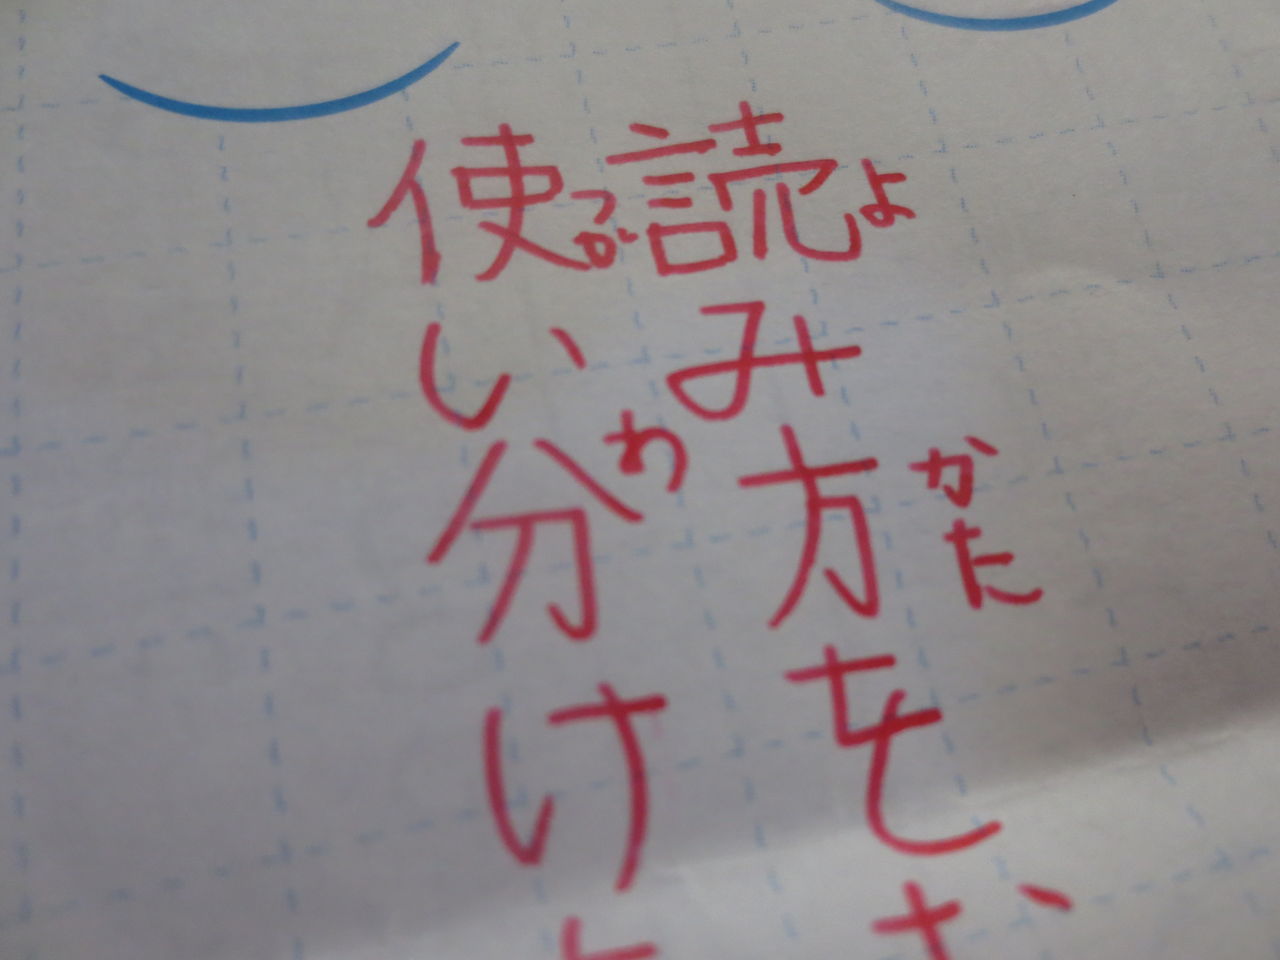 読み方を
使い分け
よ
かた
つか
わ